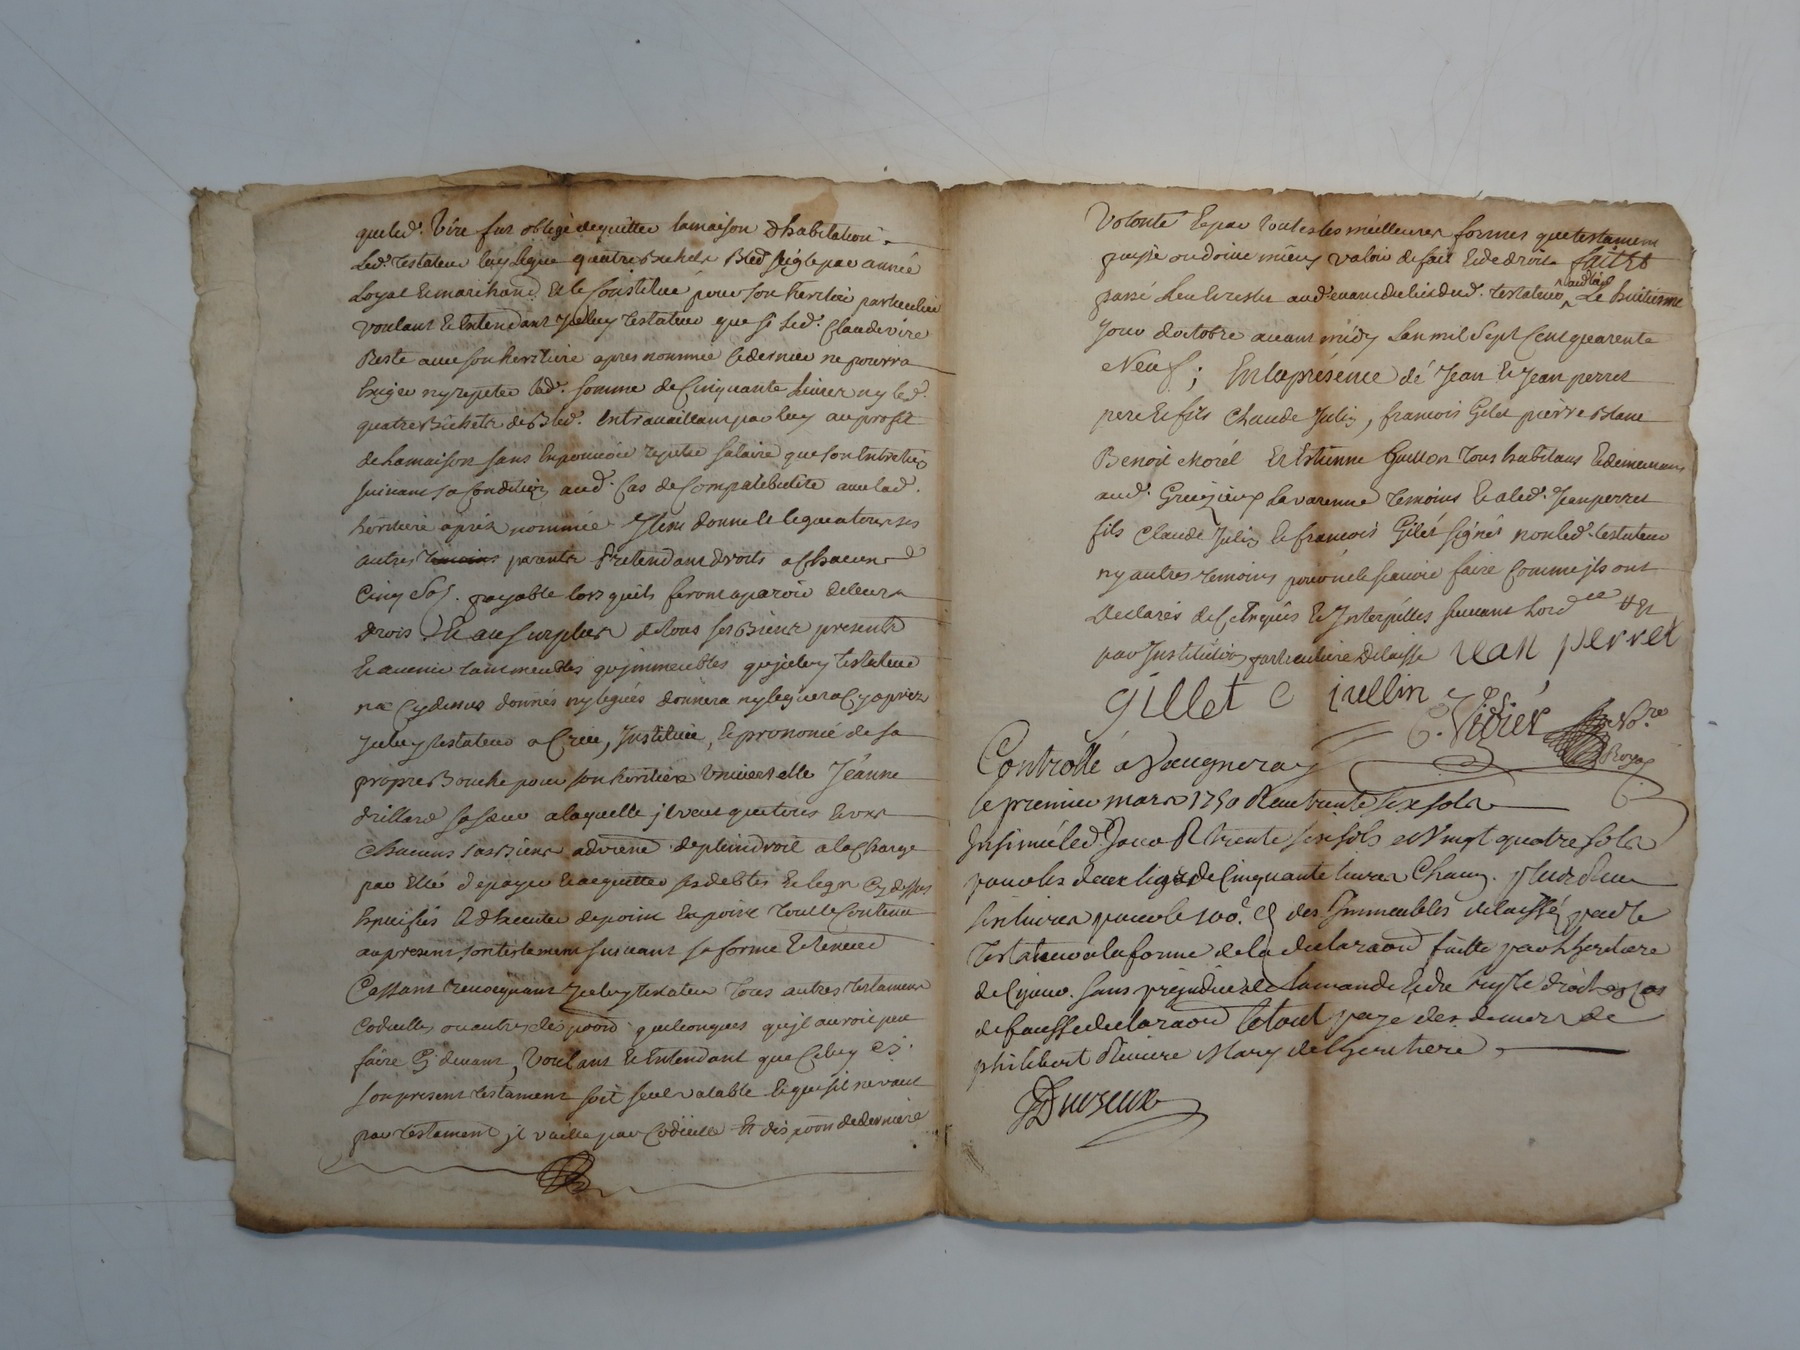 que led. Vire fut obligé de quitter la maison d'habitation.
Led. testateur luy legue quatre Bichets Bled seigle par année
Loyal et marchand et le constitue pour son heritier particulier
voulant et entendant Iceluy testateur que si led. Claude vire
Reste avec son heritiere apres nommée ce dernier ne pourra
Exiger ny repeter lad. somme de Cinquante Livres ny led.
quatre Bichets de Bled. En travaillant par luy au profit
de la maison sans En pouvoir repeter salaire que son Entretien
suivant sa condition aud. Cas de Compatibilité avec lad.
heritiere après nommée. Item donne et legue a tous ses
autres parents Pretendant droits a chacun
Cinq Sols. payable lors qu'ils feront aparoir de leurs
droits. Et au surplus de tous ses Biens presents
Et avenir tant meubles qu'immeubles qu'iceluy testateur
n'a Cy dessus donnés ny legués donnera ny leguera Cy apres
Iceluy testateur a Créé, Institué, et prononcé de sa
propre Bouche pour son heritiere Universelle Jéanne
drillard sa sœur a laquelle il veut que tous Et uns
Chacuns ses Biens advienne de plein droit a la Charge
par Elle de payer Et acquitter ses debtes Et legs Cy dessus
Et d'Executer de point En point tout le Contenu
au present son testament suivant sa forme Et teneur
Cassant revoquant Iceluy testateur tous autres testament
Codicilles ou autres de poon quelconques qu'il auroit peu
faire Cy devant, Voulant Et Entendant que Celuy Cy.
son present testament soit seul valable Et que s'il ne vaut
par testament il vaille par Codicille Et dis poon de derniere
Volonté Et par toutes les meilleures formes que testament
puisse ou doive mieux valoir de fait Et de droit. fait Et
passé Leu Et relu aud. testateur Le huitieme
Jour d'octobre avant midy L'an mil Sept Cent quarente
Neuf; En la présence dé Jean Et Jean perret
pere Et fils Claude Julin, francois Gilet pièrre Blanc
Benoit Morél Et Estienne Guillon tous habitans Et demeurans
aud. Grezieux La varenne temoins Et a led. Jean perret
fils Claude Julin Et francois Gilet signés non led. testateur
ny autres temoins pour ne le scavoir faire Comme ils ont
Declarés de Ce Enquis Et Interpellés suivant L'ord ce H Et
par Institution particuliere delaisse Jean perret
gillet C jullin
C. Vivier No re
Royal
Controllé a Vaugneray
le premier mars 1750 R trente six sols
Insinué led. Jour R trente six sols et Vingt quatre sols
pour les deux legs de Cinquante livres Chacun. plus Receu
six livres pour le 100 e des Immeubles delaissé par le
Testateur a la forme de la declaraon faitte par L'heritiere
de Ce jour. Sans prejudice de L'amande Et du triple droit au Cas
de fausse declaraon Le tout paye des deniers de
philibert Riviere Mary de L'heritiere.